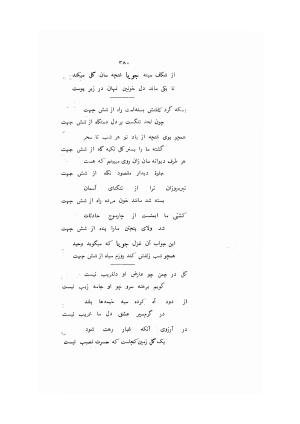 ۳۸۰
از شکاف سینه جویا غنچه سان گل میکند
تا بکی ماند دل خونین نهان در زیر پوست
بسکه گرد کلفتش بسته‌است راه از شش جهت
چون نگست بر دل دستگاه از شش جهت
همچو بوی غنچه از یاد تو هر شب تا سحر
گشته ما را بستر گل تکیه گاه از شش جهت
هر طرف دیوانه سان زان روی میبینم که هست
جلوهٔ دیدار مقصود نگاه از شش جهت
تیره‌روزان ترا از تنگنای آسمان
بسته شد مانند خون مرده راه از شش جهت
کشتی ما ایمنست از چارموج حادثات
شد ولای پنجتن مارا پناه از شش جهت
این جواب آن غزل جویا که میگوید وحید
همچو شب زلفش کند روزم سیاه از شش جهت
گل در چمن چو عارض او دلفریب نیست
گویم برهنه سرو چو او جامه زیب نیست
از دود آه کرده سیه خیمه‌ها بلند
در گرمسیر عشق دل ما غریب نیست
در آرزوی آنکه غبار رهت شود
یک گل زمین کجاست که حسرت نصیب نیست